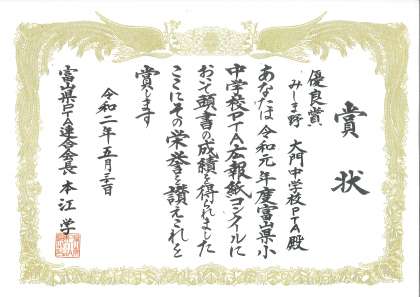 賞状
優良賞
みしま野 大門中学校PTA殿
あなたは令和元年度富山県小
中学校PTA広報紙コンクールに
おいて頭書の成績を得られました
ここにその栄誉を讃えこれを
賞します
令和二年五月三日
富山県PTA連合会長 本江 学